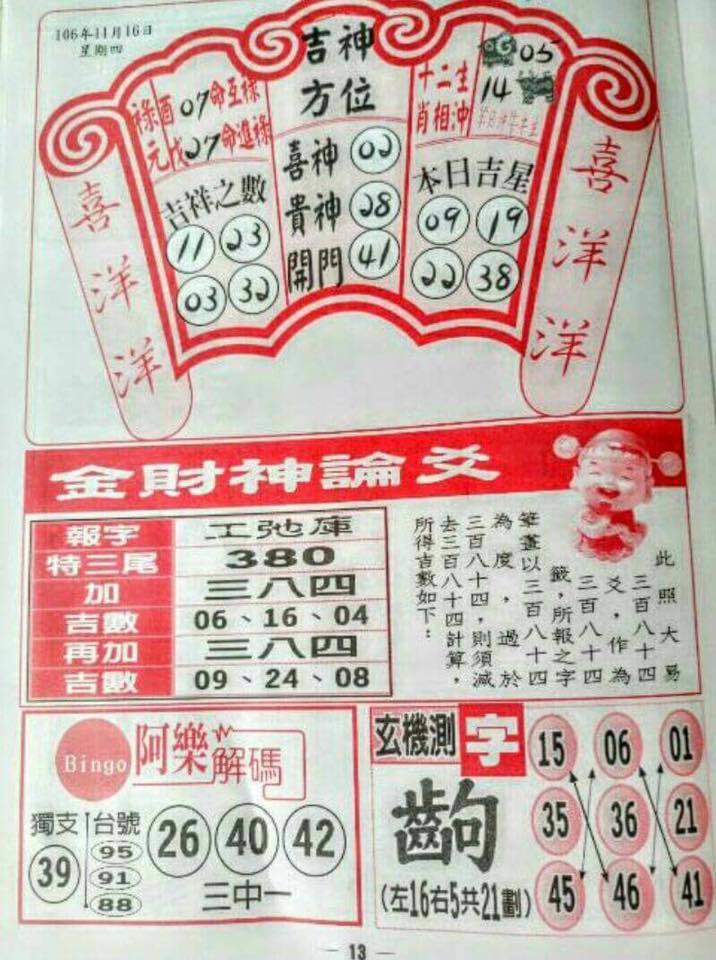 106年11月16日
星期四
喜洋洋
祿酉07命互祿
元戊27命進祿
吉祥之數
11 23
03 32
吉神
方位
喜神 02
貴神 28
開門 41
十二生
肖相沖
05
14
本日吉星
09 19
22 38
喜洋洋
金財神論爻
報字 工弛庫
特三尾 380
加 三八四
吉數 06、16、04
再加 三八四
吉數 09、24、08
此照大易
三百八十四
爻，作為
三百八十四
籤，所報之字
筆畫以三百八十四
為度，過於
三百八十四，則須減
去三百八十四計算，
所得吉數如下：
Bingo 阿樂解碼
獨支 39
台號
95
91
88
26 40 42
三中一
玄機測字
齣
(左16右5共21劃)
15 06 01
35 36 21
45 46 41
— 13 —